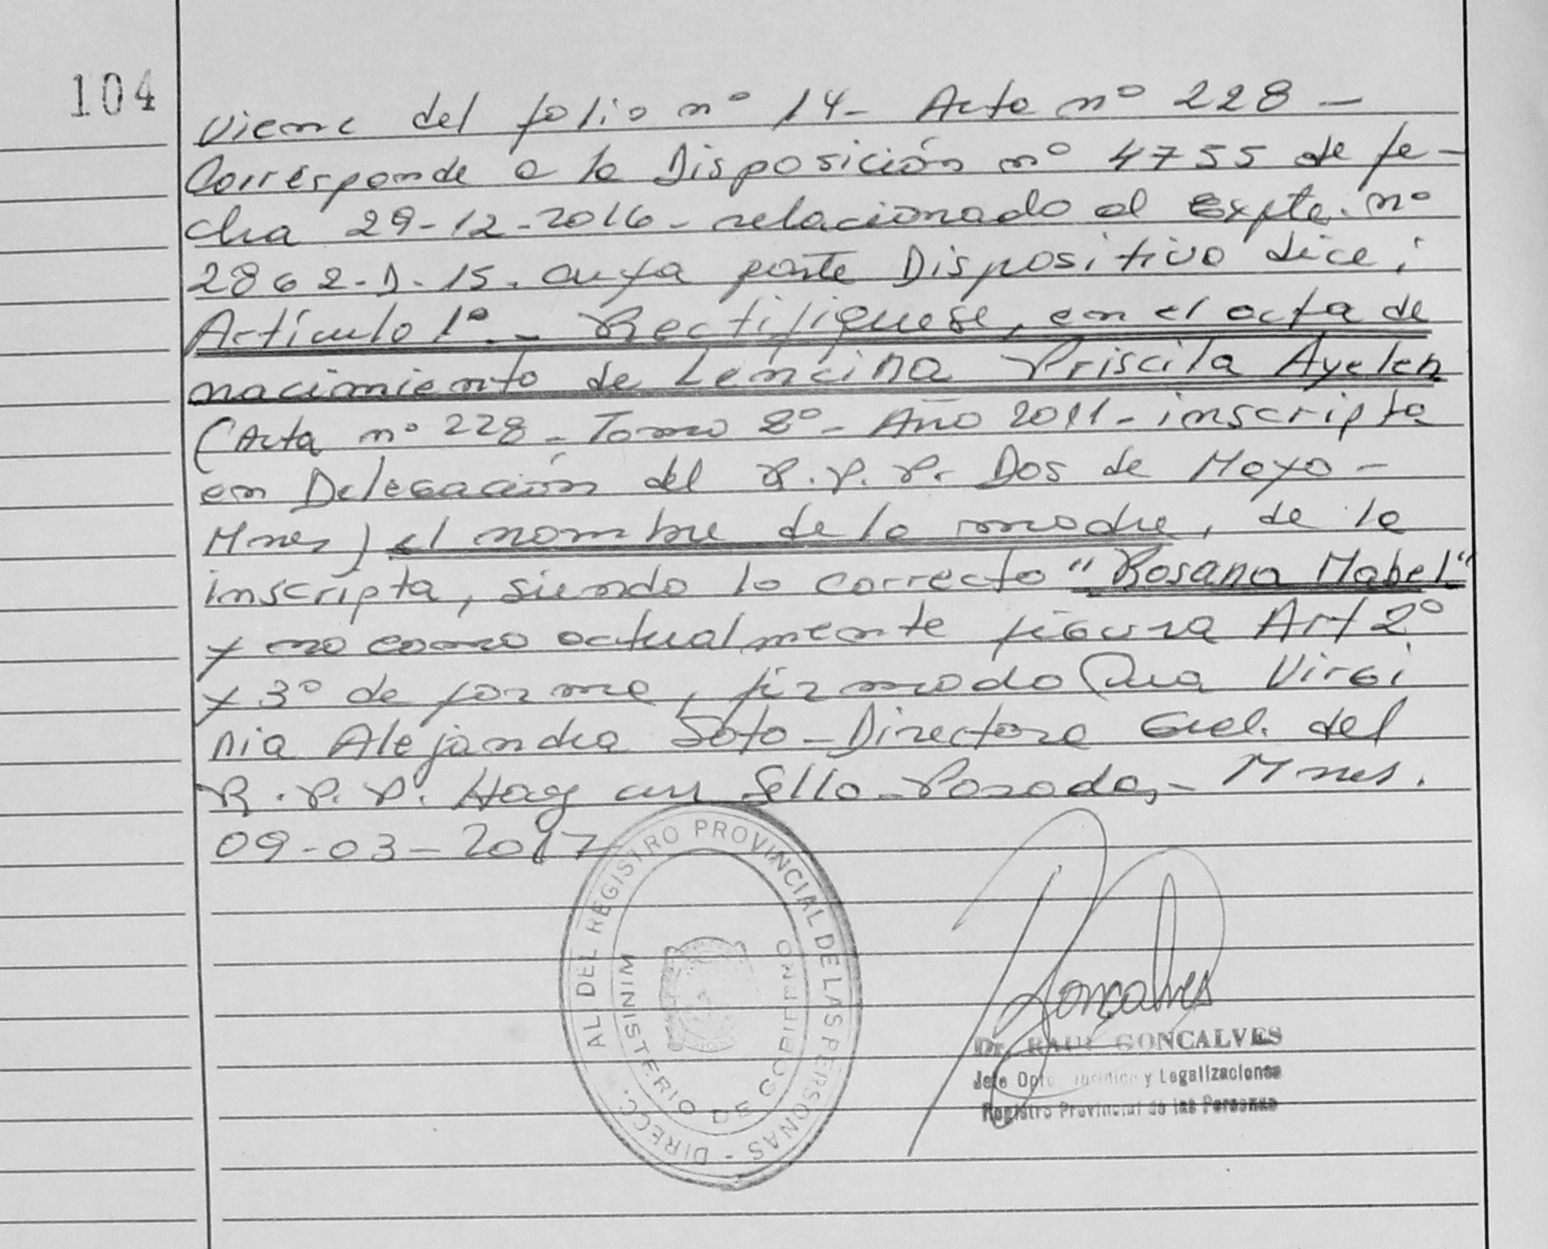 104
Viene del folio nº 14- Acta nº 228 -
Corresponde a la Disposición nº 4755 de fe-
cha 29-12-2016- relacionado al Expte. nº
2862-D-15. cuya parte Dispositivo dice:
Artículo 1º - Rectifíquese, en el acta de
nacimiento de Lencina Priscila Ayelen
(Acta nº 228 - Tomo 2º - Año 2011 - inscripta
en Delegación del R.P.P. Dos de Mayo -
Mnes) el nombre de la madre, de la
inscripta, siendo lo correcto "Rosana Mabel"
y no como actualmente figura Art 2º
y 3º de forma, firmado Dra Virgi
nia Alejandra Soto - Directora Gral. del
R.P.P. Hay un Sello - Posadas, - Mnes.
09-03-2017
AL DEL REGISTRO PROVINCIAL DE LAS PERSONAS - DIRECC.
MINISTERIO DE GOBIERNO
Goncalves
Dr. RAUL GONCALVES
Jefe Dpto. Jurídico y Legalizaciones
Registro Provincial de las Personas